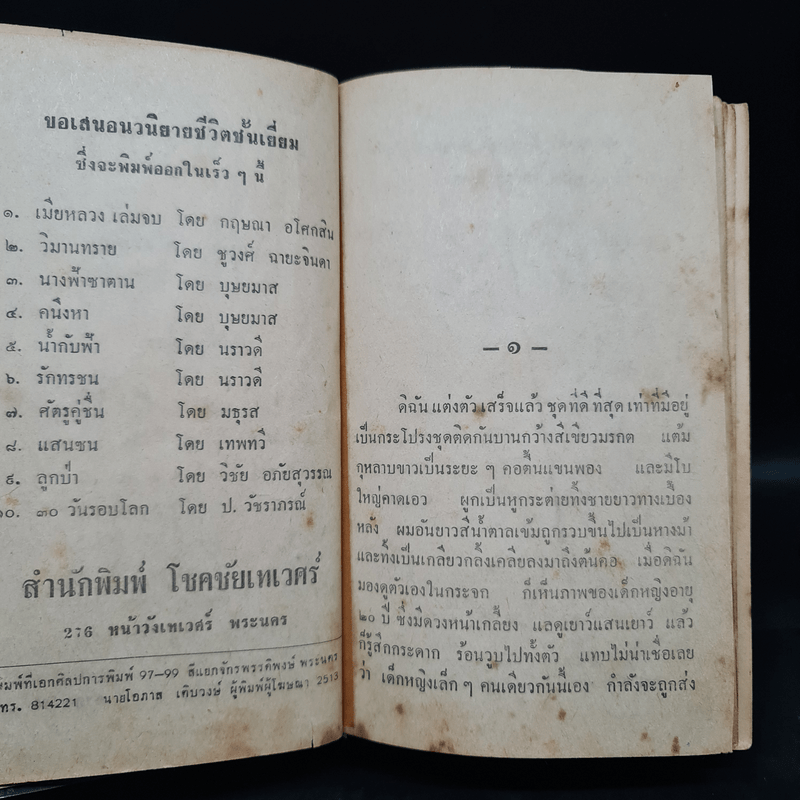 ขอเสนอนวนิยายชีวิตชั้นเยี่ยม
ซึ่งจะพิมพ์ออกในเร็ว ๆ นี้
๑. เมียหลวง เล่มจบ โดย กฤษณา อโศกสิน
๒. วิมานทราย โดย ชูวงศ์ ฉายะจินดา
๓. นางฟ้าซาตาน โดย บุษยมาส
๔. คนึงหา โดย บุษยมาส
๕. น้ำกับฟ้า โดย นราวดี
๖. รักทรชน โดย นราวดี
๗. ศัตรูคู่ชื่น โดย มธุรส
๘. แสนซน โดย เทพทวี
๙. ลูกป่า โดย วิชัย อภัยสุวรรณ
๑๐. ๓๐ วันรอบโลก โดย ป. วัชราภรณ์
สำนักพิมพ์ โชคชัยเทเวศร์
276 หน้าวังเทเวศร์ พระนคร
พิมพ์ที่เอกศิลปการพิมพ์ 97-99 สี่แยกจักรพรรดิพงษ์ พระนคร
โทร. 814221 นายโอภาส เติบวงษ์ ผู้พิมพ์ผู้โฆษณา 2513
— ๑ —
ดิฉัน แต่งตัว เสร็จแล้ว ชุดที่ดี ที่สุด เท่าที่มีอยู่
เป็นกระโปรงชุดติดกันบานกว้างสีเขียวมรกต แต้ม
กุหลาบขาวเป็นระยะ ๆ คอตื้นแขนพอง และมีโบ
ใหญ่คาดเอว ผูกเป็นหูกระต่ายทิ้งชายยาวทางเบื้อง
หลัง ผมอันยาวสีน้ำตาลเข้มถูกรวบขึ้นไปเป็นหางม้า
และทิ้งเป็นเกลียวกลิ้งเคลียลงมาถึงต้นคอ เมื่อดิฉัน
มองดูตัวเองในกระจก ก็เห็นภาพของเด็กหญิงอายุ
๒๐ ปี ซึ่งมีดวงหน้าเกลี้ยง แลดูเยาว์แสนเยาว์ แล้ว
ก็รู้สึกกระดาก ร้อนวูบไปทั้งตัว แทบไม่น่าเชื่อเลย
ว่า เด็กหญิงเล็ก ๆ คนเดียวกันนี้เอง กำลังจะถูกส่ง